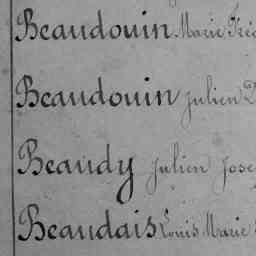 Beaudouin Marie
Beaudouin Julien
Beaudy Julien
Beaudais Louis Marie